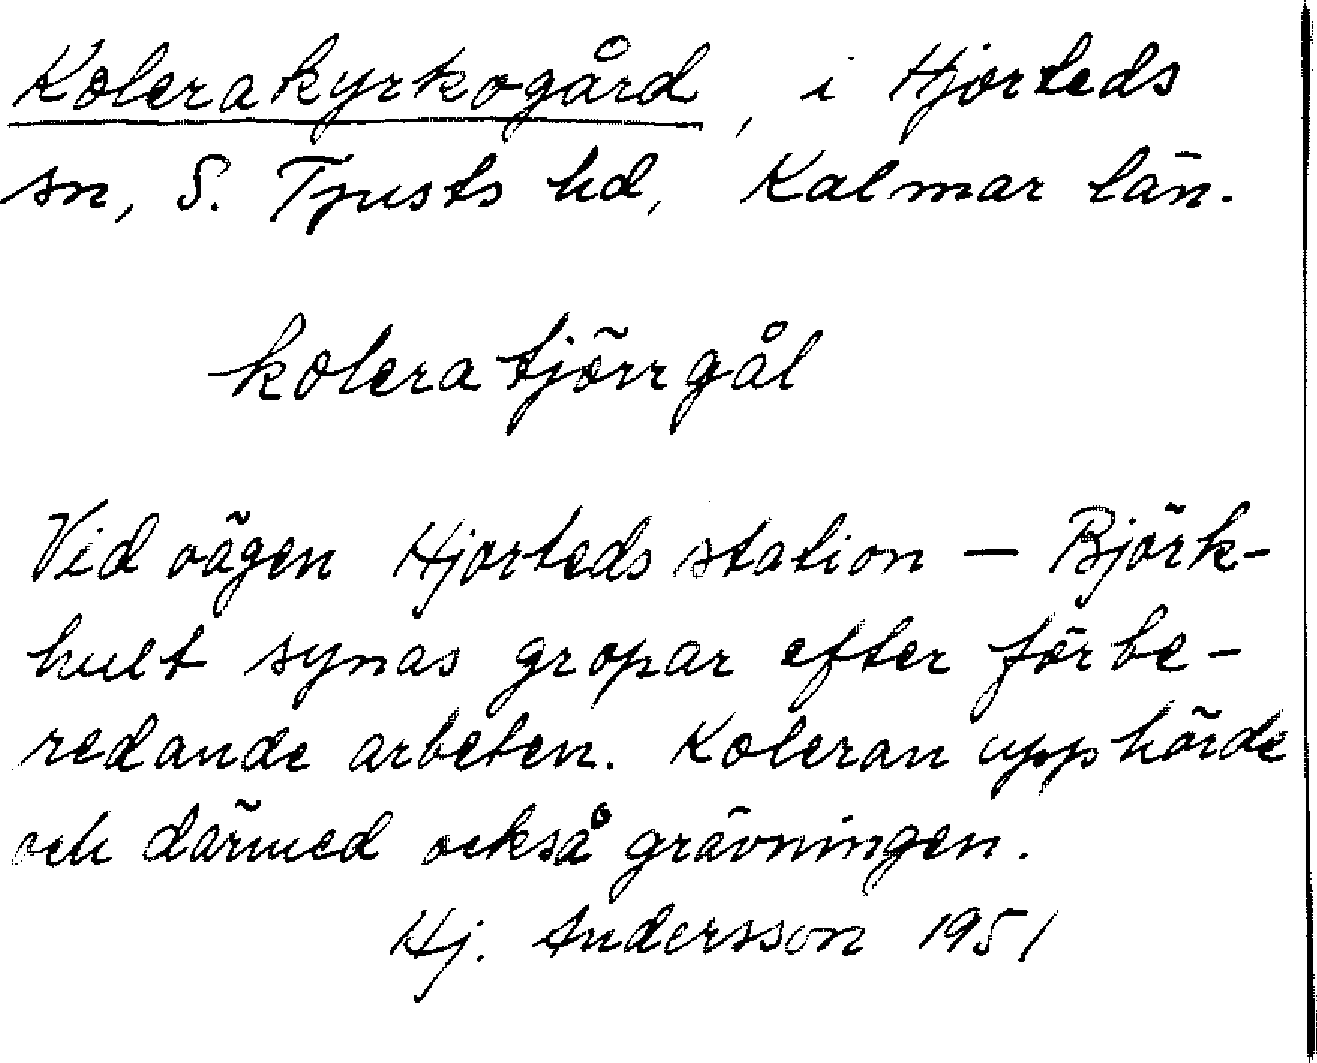 Kolerakyrkogård, i Hjorteds
sn, S. Tjusts hd, Kalmar län.
koleratjörrgål
Vid vägen Hjorteds station — Björk-
hult synas gropar efter förbe-
redande arbeten. Koleran upphörde
och därmed också grävningen.
Hj. Andersson 1951